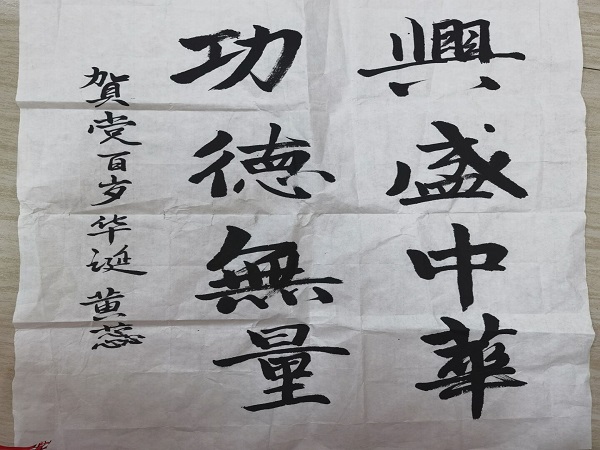 興盛中華
功德無量
贺党百岁华诞 黄蕊